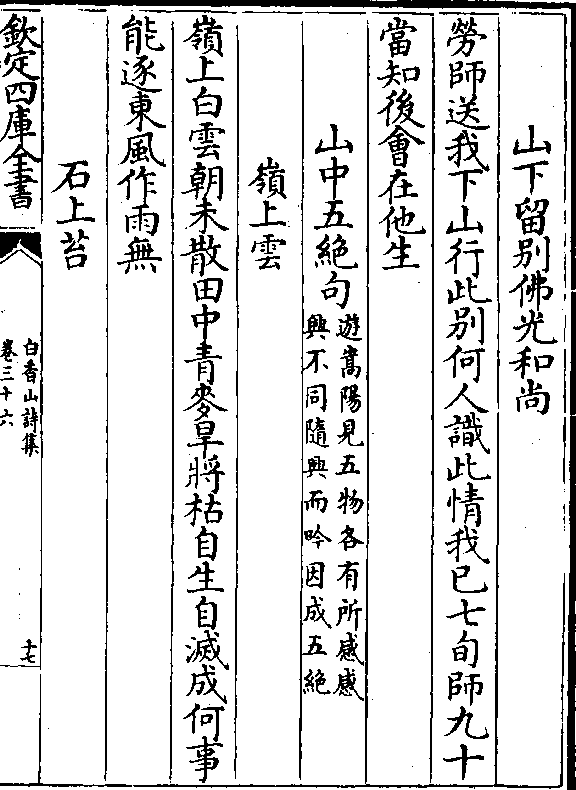 山下留别佛光和尚
勞師送我下山行此别何人識此情我已七旬師九十
當知後會在他生
山中五絶句
遊嵩陽見五物各有所感感
興不同隨興而吟因成五絶
嶺上雲
嶺上白雲朝未散田中青麥旱將枯自生自滅成何事
能逐東風作雨無
石上苔
欽定四庫全書
白香山詩集
卷三十六
十七